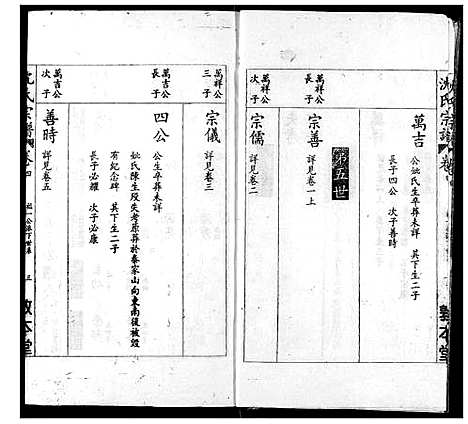 沈氏宗譜
敦本堂
萬吉
公妣氏生卒葬未詳 其下生二子
長子四公 次子善時
第五世
萬祥公
長子
宗善
詳見卷一上
萬祥公
次子
宗儒
詳見卷二
萬祥公
三子
宗儀
詳見卷三
萬吉公
長子
四公
公生卒葬未詳
妣氏陳生歿失考原葬於秦家山向東南後被毀
有紀念碑 其下生二子
長子必耀 次子必康
萬吉公
次子
善時
詳見卷五
沈氏宗譜
三
敦本堂